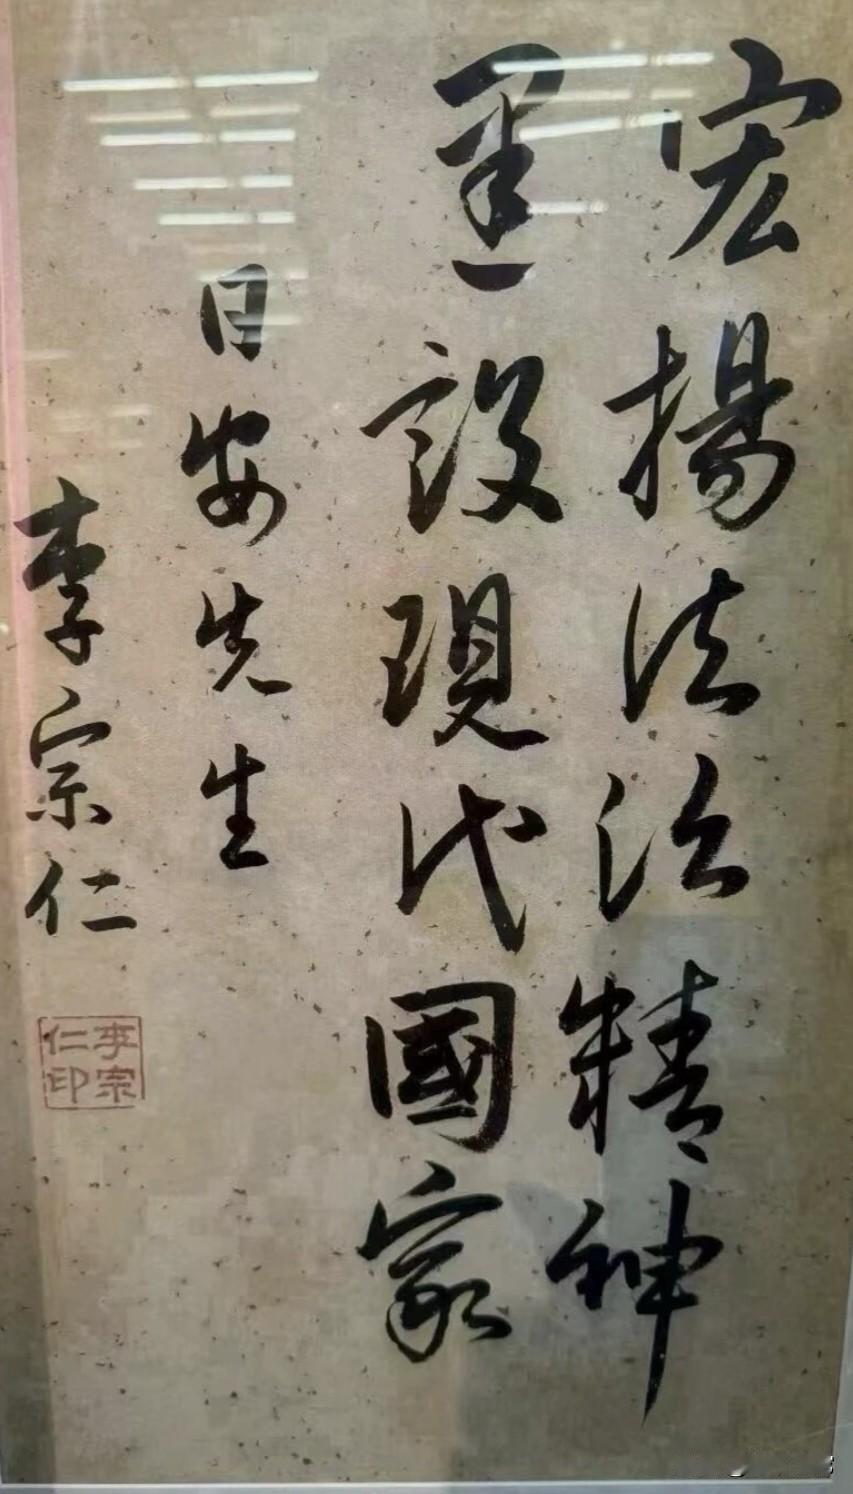 宏揚法治精神
建設現代國家
日安先生
李宗仁
李宗仁印